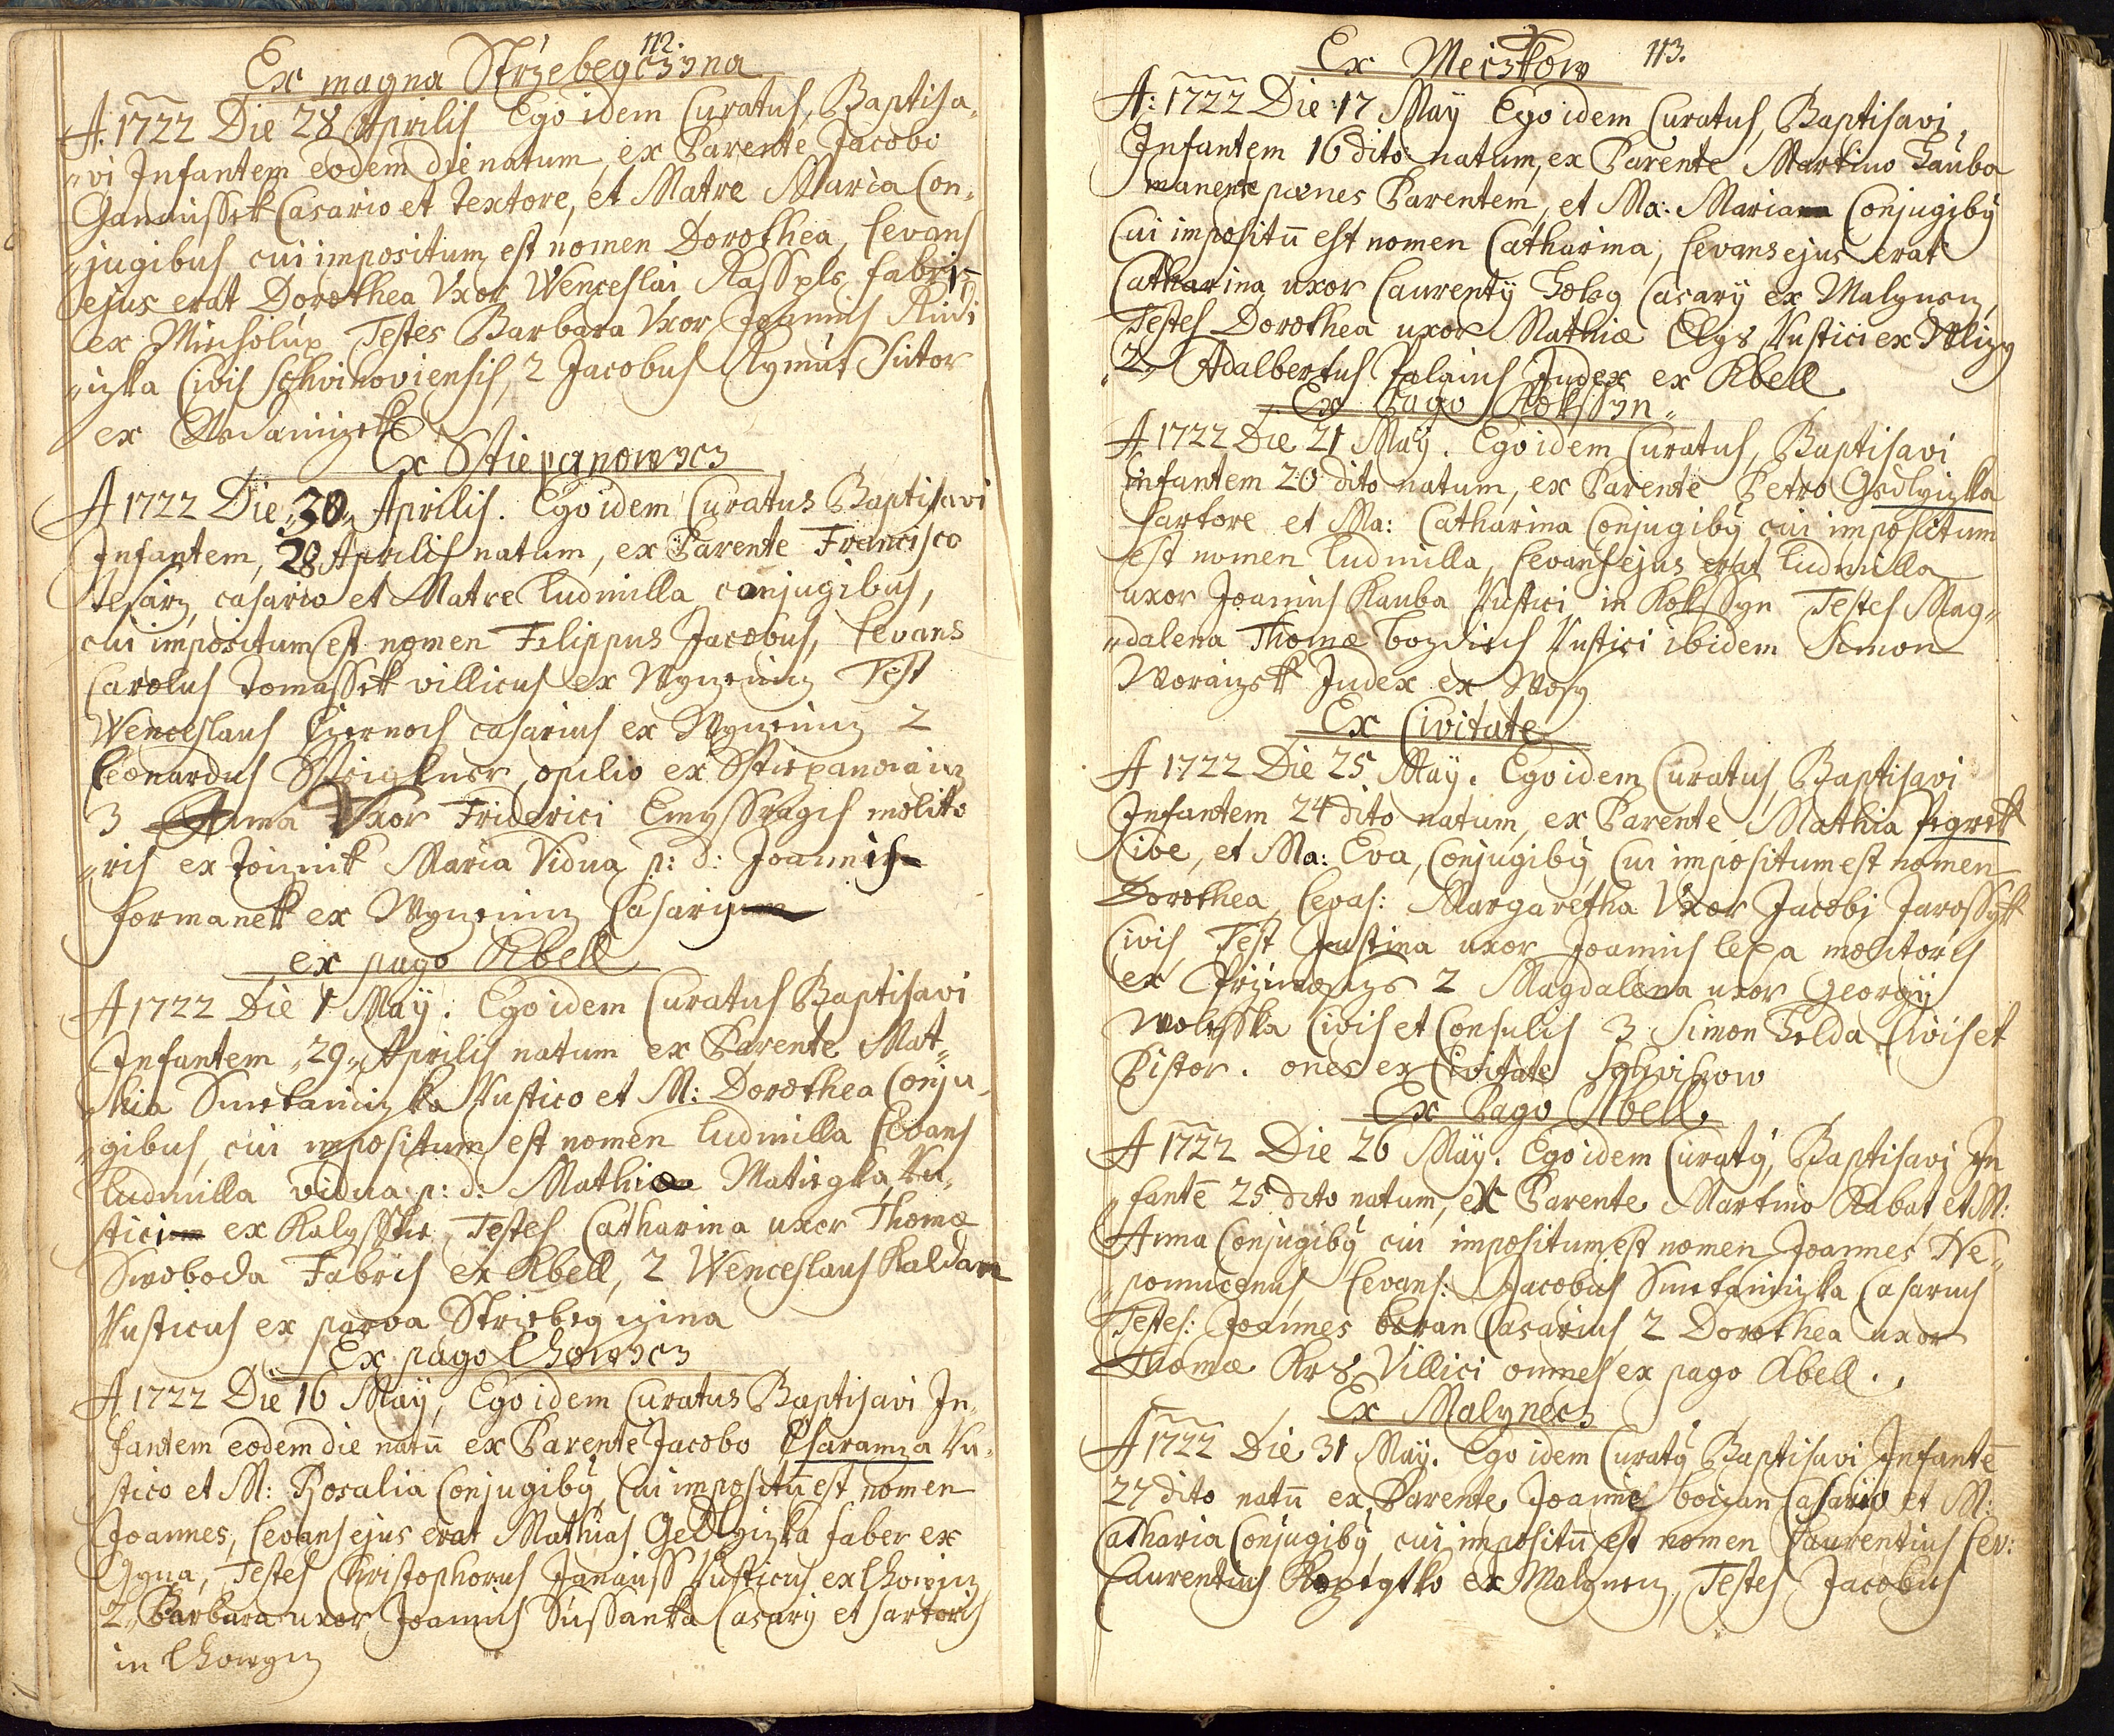 112.
Ex magna Strzebegczyna
A. 1722 Die 28 Aprilis Ego idem Curatus, Baptisa„
„vi Infantem eodem die natum, ex Parente Jacobi
Casario et Textore, et Matre Maria Con„
„jugibus, cui impositum est nomen Dorothea, Levans
ejus erat Dorothea Vxor Wenceslai fabri
ex Miecholup Testes Barbara Vxor Joannis
Civis Schvihoviensis, 2 Jacobus Klymut Sutor
ex
Ex Stiepanowycz
A 1722 Die „30„ Aprilis. Ego idem Curatus Baptisavi
Infantem, 28 Aprilis natum, ex Parente Francisco
Tesarz, casario et Matre Ludmilla conjugibus,
cui impositum est nomen Filippus Jacobus, Levans
Carolus Tomassek villicus ex Test
Wenceslaus casarius ex 2
Leonardus opilio ex
3 Anna Vxor Friderici molito
„ris ex Maria Vidua p: d: Joannis
formanek ex Casary
ex pago Kbell
A 1722 Die 1 Maÿ. Ego idem Curatus Baptisavi
Infantem „29„ Aprilis natum ex Parente Mat„
„hia Smetaniczka Rustico et M: Dorothea Conju„
„gibus, cui impositum est nomen Ludmilla Levans
Ludmilla vidua p: d: Mathiæ Matiegka, Ru„
stici ex Testes Catharina uxor Thomæ
Swoboda Fabris ex Kbell, 2 Wenceslaus Kalda
Rusticus ex parva Strzebegczina
Ex pago Lhowycz
A 1722 Die 16 Maÿ, Ego idem Curatus Baptisavi In„
fantem eodem die natū ex Parente Jacobo Charamza Ru„
stico et M: Rosalia Conjugibÿ, Cui impositū est nomen
Joannes, Levans ejus erat Mathias Gedlyczka faber ex
Testes Christophorus Janauss Rusticus ex Lhowycz
2„ Barbara uxor Joannis Sussanka Casarÿ et sartoris
in Lhowycz
113.
Ex Mecżkow
A: 1722 Die 17 Maÿ Ego idem Curatus, Baptisavi
Infantem 16 dito natum, ex Parente Martino Hauba
manente pænes Parentem, et Ma: Maria Conjugibÿ
Cui impositū est nomen Catharina, Levans ejus erat
Catharina uxor Laurentÿ Casarÿ ex Malynecz,
Testes Dorothea uxor Mathiæ Rustici ex
„2„ Adalbertus Judex ex Kbell
Ex Pago Kokssyn„
A 1722 Die 21 Maÿ. Ego idem Curatus, Baptisavi
Infantem 20 dito natum, ex Parente Petro Gedlyczka
sartore et Ma: Catharina Conjugibÿ cui impositum
est nomen Ludmilla, Levans ejus erat Ludmilla
uxor Joannis Kauba Rustici in Kokssyn Testes Mag„
„dalena Thomæ Rustici ibidem Simon
Judex ex
Ex Civitate
A 1722 Die 25 Maÿ. Ego idem Curatus, Baptisavi
Infantem 24 dito natum, ex Parente Mathia
Cive, et Ma: Eva, Conjugibÿ, Cui impositum est nomen
Dorothea, Levas: Margaretha Vxor Jacobi Jarossyk
Civis, Test Justina uxor Joannis Lepa molitoris
ex 2 Magdalena uxor Georgÿ
Wolesska Civis et Consulis 3 Simon Helda Civis et
Pistor. ones ex Civitate Schvihow
Ex Pago Kbell.
A 1722 Die 26 Maÿ. Ego idem Curatÿ, Baptisavi In
„fantē 25 dito natum, ex Parente Martino Rabat, et M:
Anna Conjugibÿ cui impositum est nomen Joannes Ne„
„pomucenus, Levans: Jacobus Smetaniczka Casarius
Testes: Joannes beran Casarius, 2 Dorothea uxor
Thomæ Krs Villici omnes ex pago Kbell.
Ex Malynecz
A 1722 Die 31 Maÿ. Ego idem Curatÿ Baptisavi Infantē
27 dito natū ex Parente Joanne Casario et M:
Catharia Conjugibÿ, cui impositū est nomen Laurentius Lev:
Laurentius ex Malynecz, Testes Jacobus